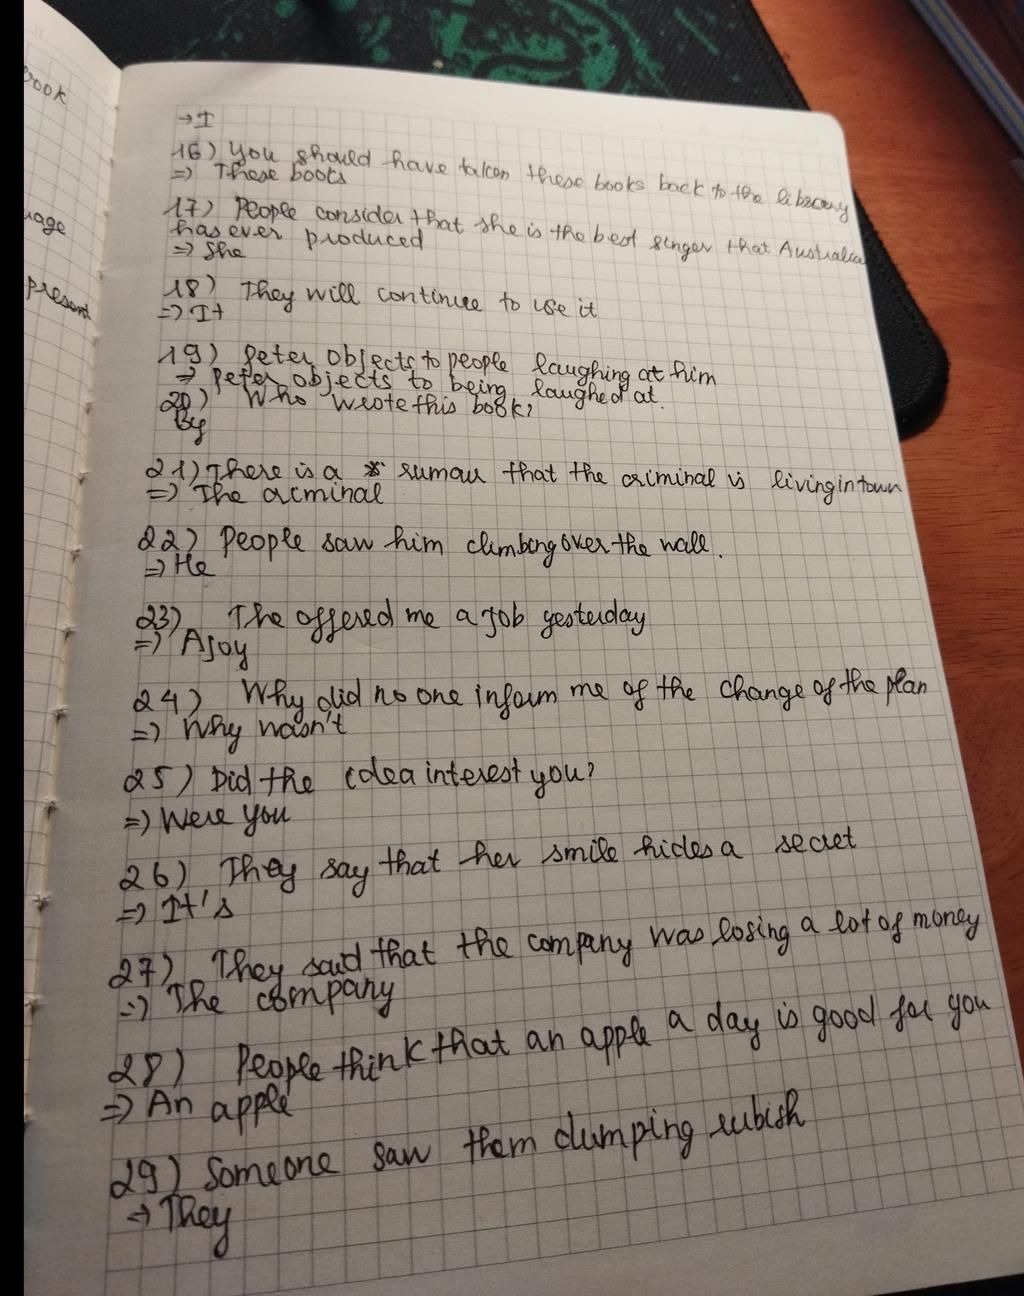 rook
uage
present
→ I
16) You should have taken these books back to the library
=> These books
17) People consider that she is the best singer that Australia
has ever produced
=> She
18) They will continue to use it
=> It
19) Peter objects to people laughing at him
=> Peter objects to being laughed at.
20) Who wrote this book?
By
21) There is a rumau that the criminal is living in town
=> The acminal
22) People saw him climbing over the wall.
=> He
23) The offered me a job yesterday
=> A joy
24) Why did no one inform me of the change of the plan
=> Why wasn't
25) Did the idea interest you?
=> Were you
26) They say that her smile hides a secret
=> It's
27) They said that the company was losing a lot of money
=> The company
28) People think that an apple a day is good for you
=> An apple
29) Someone saw them dumping rubish
=> They